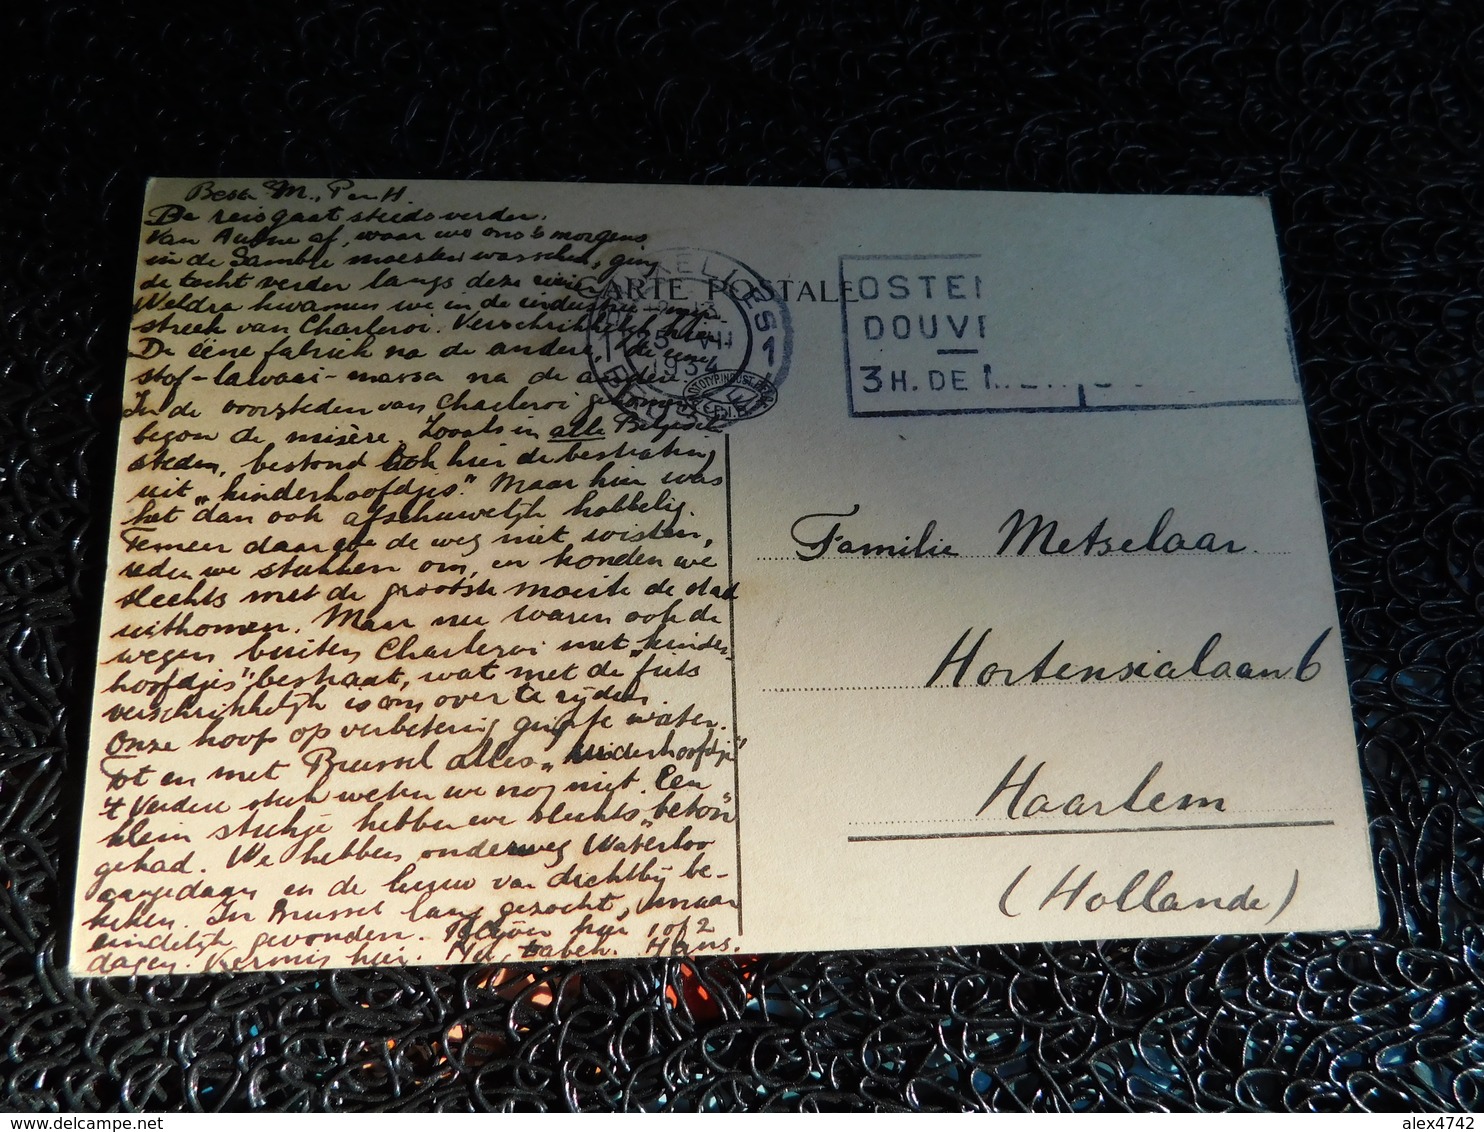 Beste M., P en H.
De reis gaat steeds verder.
Van Aulne af, waar we ons 's morgens
in de Sambre moesten wasschen, ging
de tocht verder langs deze rivier.
Weldra kwamen we in de industrie
streek van Charleroi. Verschrikkelijk
De eene fabriek na de andere, de eene
stof-lawaai-massa na de andere.
In de voorsteden van Charleroi gekomen
begon de misère. Zooals in alle Belgische
steden, bestond ook hier de bestrating
uit „kinderhoofdjes". Maar hier was
het dan ook afschuwelijk hobbelig.
Temeer daar we de weg niet wisten,
reden we stukken om, en konden we
slechts met de grootste moeite de stad
uitkomen. Maar nu waren ook de
wegen buiten Charleroi met „kinder-
hoofdjes" bestraat, wat met de fiets
verschrikkelijk is om over te rijden.
Onze hoop op verbetering ging te water.
Tot en met Brussel alles „kinderhoofdje"
't Verdere stuk weten we nog niet. Een
klein stukje hebben we slechts „beton"
gehad. We hebben onderweg Waterloo
aangedaan en de leeuw van dichtbij be-
keken. In Brussel lang gezocht, maar
eindelijk gevonden. Blijven hier 1 of 2
dagen. Kermis hier. Hans.
CARTE POSTALE
1934
1
OSTEN
DOUV
3H. DE
Familie Metselaar.
Hortensialaan 6
Haarlem
(Hollande)
delcampe.net
alex4742